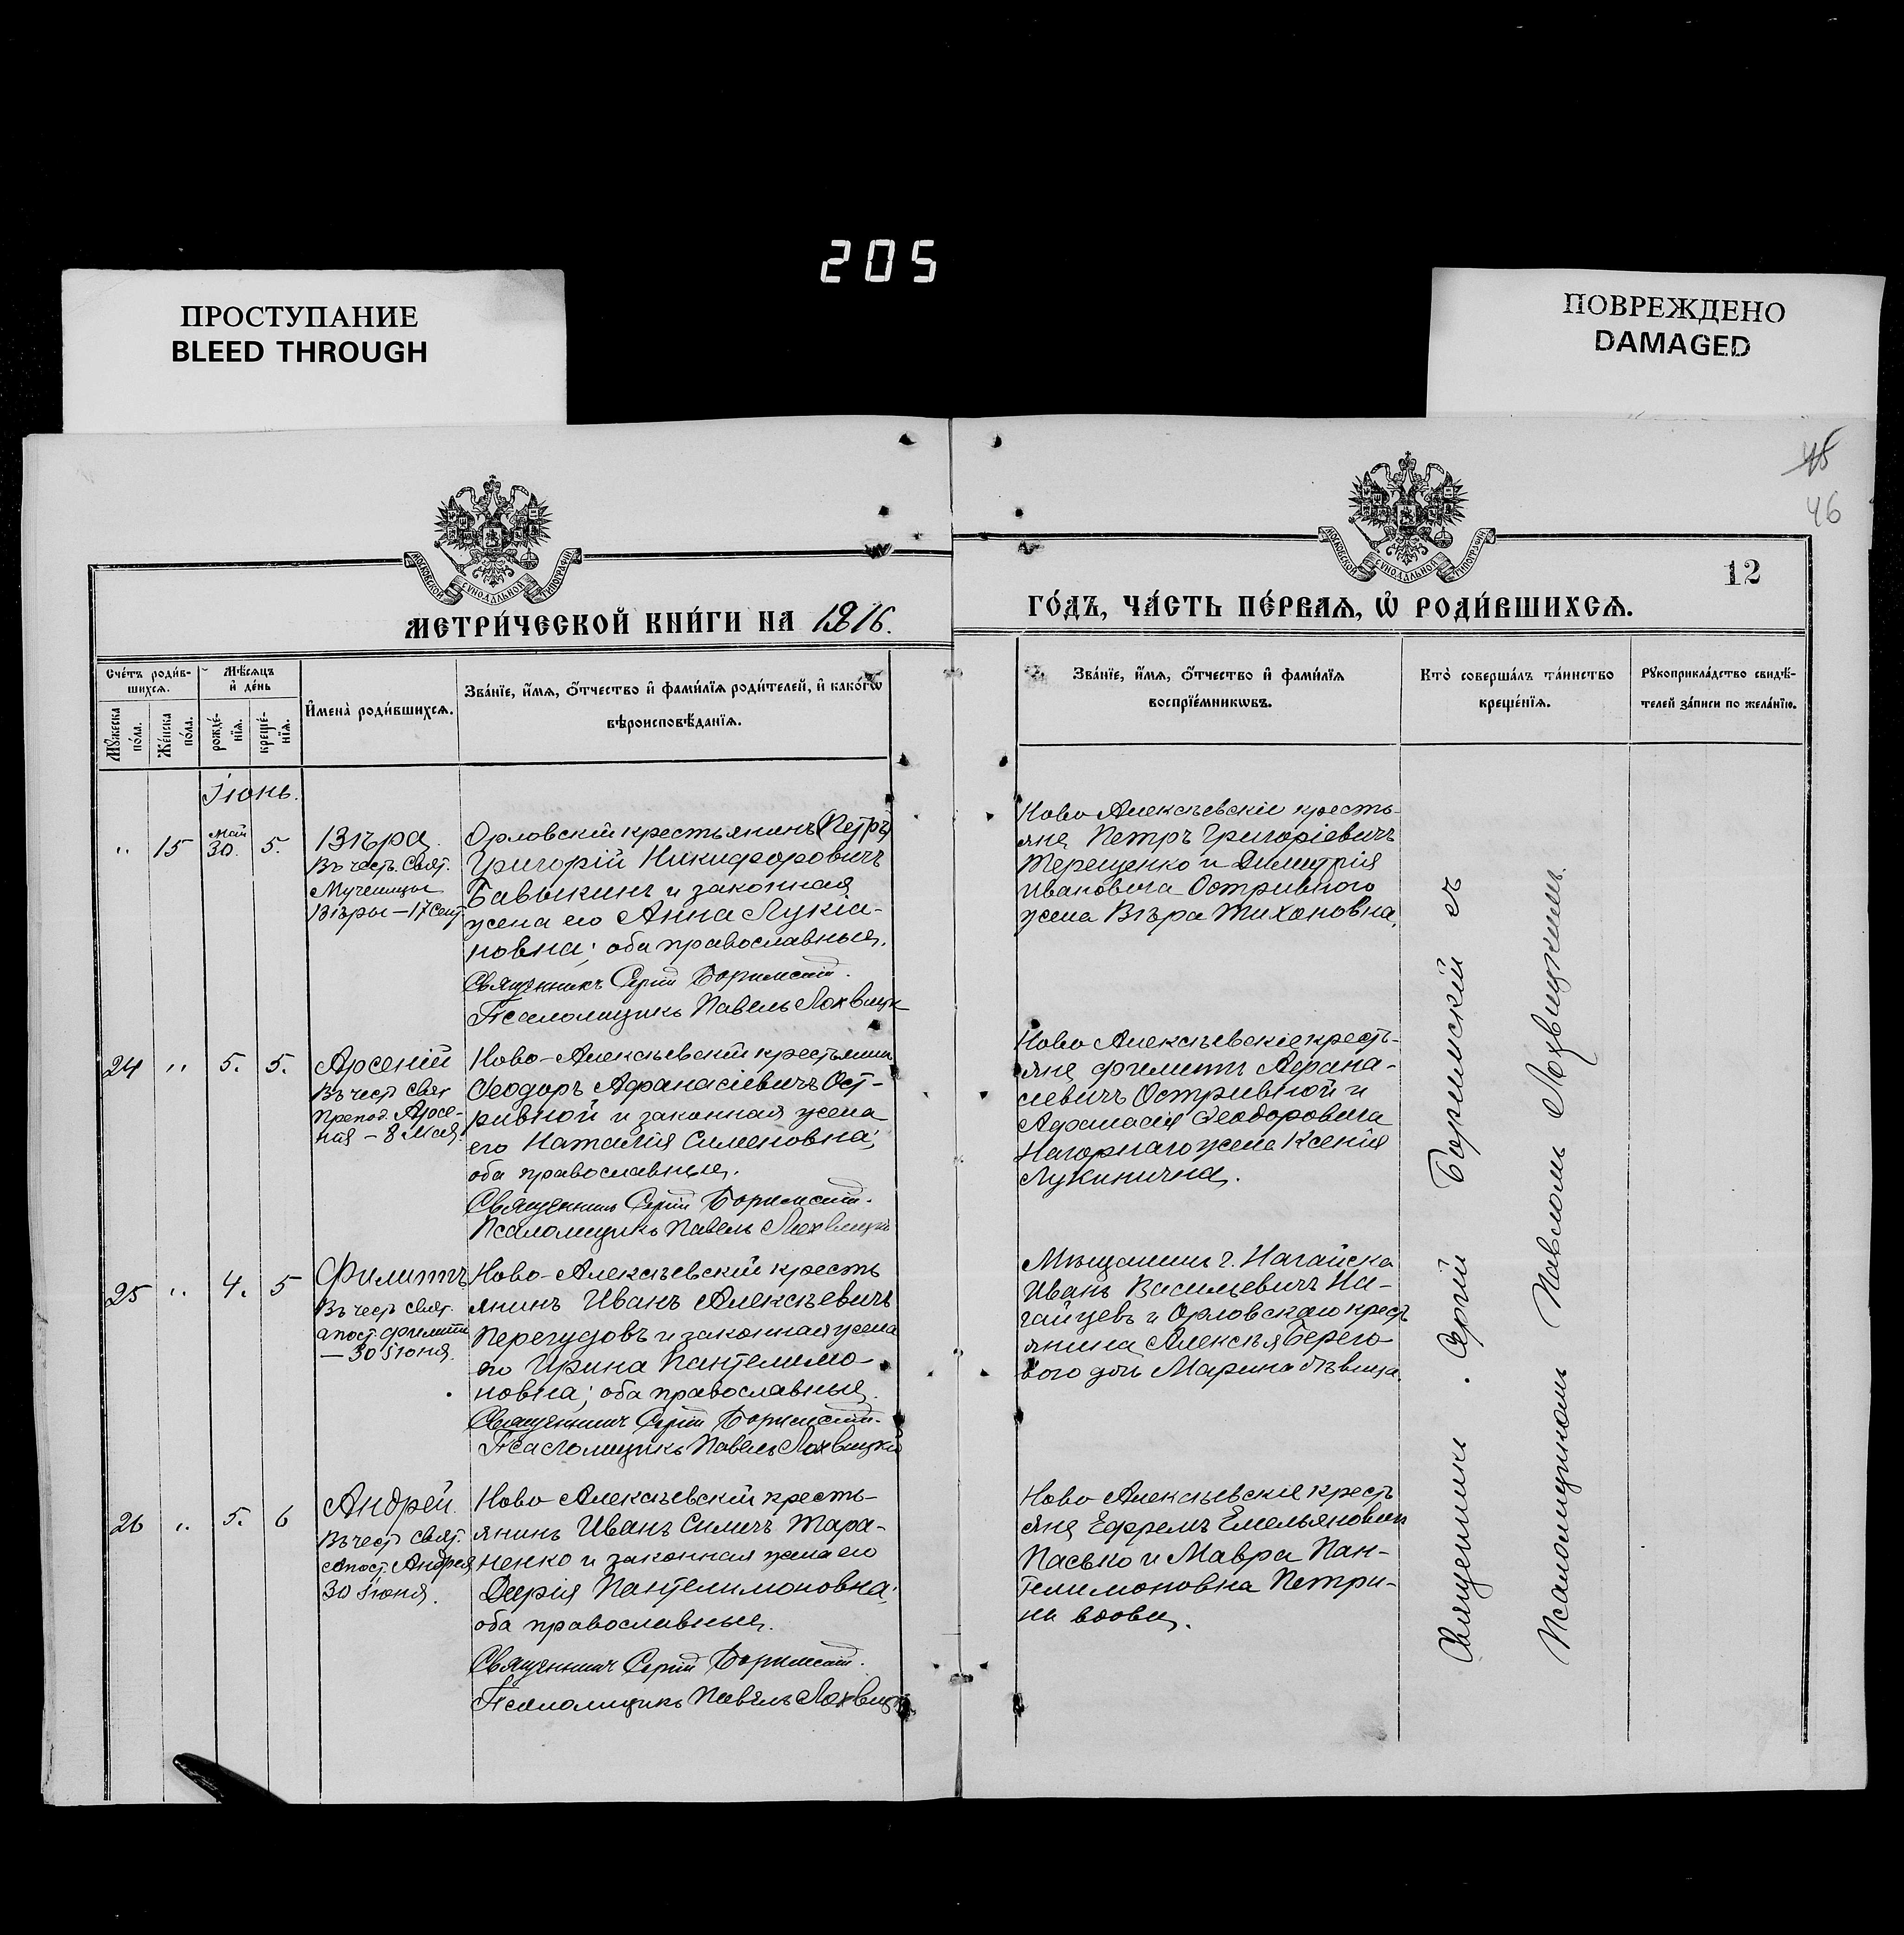 205
ПРОСТУПАНИЕ
BLEED THROUGH
ПОВРЕЖДЕНО
DAMAGED
45
46
12
МОСКОВСКОЙ СѴНОДАЛЬНОЙ ТИПОГРАФІИ
МОСКОВСКОЙ СѴНОДАЛЬНОЙ ТИПОГРАФІИ
МЕТРИ́ЧЕСКОЙ КНИ́ГИ НА 1916.
ГО́ДЪ, ЧА́СТЬ ПЕ́РВАѦ, Ѡ҆ РОДИ́ВШИХСѦ.
Сче́тъ роди́в-
шихсѧ.
Мѣ́сѧцъ
и҆ де́нь
Мꙋ́жеска
по́ла.
Же́нска
по́ла.
рожде́-
нїѧ.
креще́-
нїѧ.
И҆мена̀ роди́вшихсѧ.
Зва́нїе, и҆́мѧ, ѻ҆́тчество и҆ фамѝлїѧ роди́телей, и҆ како́гѡ
вѣроисповѣ́данїѧ.
Зва́нїе, и҆́мѧ, ѻ҆́тчество и҆ фамѝлїѧ
воспрїе́мникѡвъ.
Кто̀ соверша́лъ та́инство
креще́нїѧ.
Рꙋкоприкла́дство свидѣ́-
телей за́писи по жела́нїю.
Іюнь.
" 15 май 30. 5.
Вѣра
Въ честь Свят.
Мученицы
Вѣры – 17 Сент.
Орловскій крестьянинъ (Петръ)
Григорій Никифоровичъ
Бавыкинъ и законная
жена его Анна Лукіа-
новна; оба православные.
Священникъ Сергій Боримскій.
Псаломщикъ Павелъ Лохвицк
Ново Алексѣевскіе кресть-
яне Петръ Григоріевичъ
Терещенко и Димитрія
Ивановича Остривного
жена Вѣра Тихоновна.
24 " 5. 5.
Арсеній
Въ честь Свят
Препод. Арсе-
нія – 8 Мая.
Ново-Алексѣевскій крестьянин
Ѳеодоръ Афанасіевичъ Ост-
ривной и законная жена
его Наталія Симеоновна;
оба православные.
Священникъ Сергій Боримскій.
Псаломщикъ Павелъ Лохвицкій
Ново Алексѣевскіе кресть-
яне Филиппъ Афана-
сіевичъ Остривной и
Афанасія Ѳеодоровича
Нагорнаго жена Ксенія
Лукинична.
25 " 4. 5
Филиппъ
Въ честь Свят.
апост. Филиппа
– 30 Іюня.
Ново-Алексѣевскій кресть
янинъ Иванъ Алексѣевичъ
Перегудовъ и законная жена
его Ирина Пантелимо-
новна; оба православные.
Священникъ Сергій Боримскій.
Псаломщикъ Павелъ Лохвицкій
Мѣщанинъ г. Нагайска
Иванъ Васильевичъ На-
гайцевъ и Орловскаго крест
янина Алексѣя Берего
вого дочь Марина дѣвица.
26 " 5. 6
Андрей
Въ честь Свят.
Апост. Андрея
30 Іюня.
Ново Алексѣевскій кресть-
янинъ Иванъ Силичъ Тара-
ненко и законная жена его
Дарія Пантелимоновна;
оба православные.
Священникъ Сергій Боримскій.
Псаломщикъ Павелъ Лохвицк
Ново Алексѣевскіе крест
яне Ефремъ Емельяновичъ
Пасько и Мавра Пан-
телимоновна Петри-
на вдова.
Священникъ Сергій Боримскій съ
Псаломщикомъ Павломъ Лохвицкимъ.